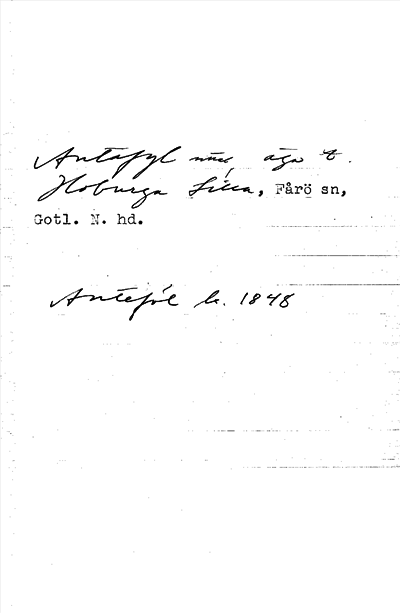 Antajyl nu äga t.
Hoburga Lilla, Fårö sn,
Gotl. N. hd.
Antejöl k. 1848